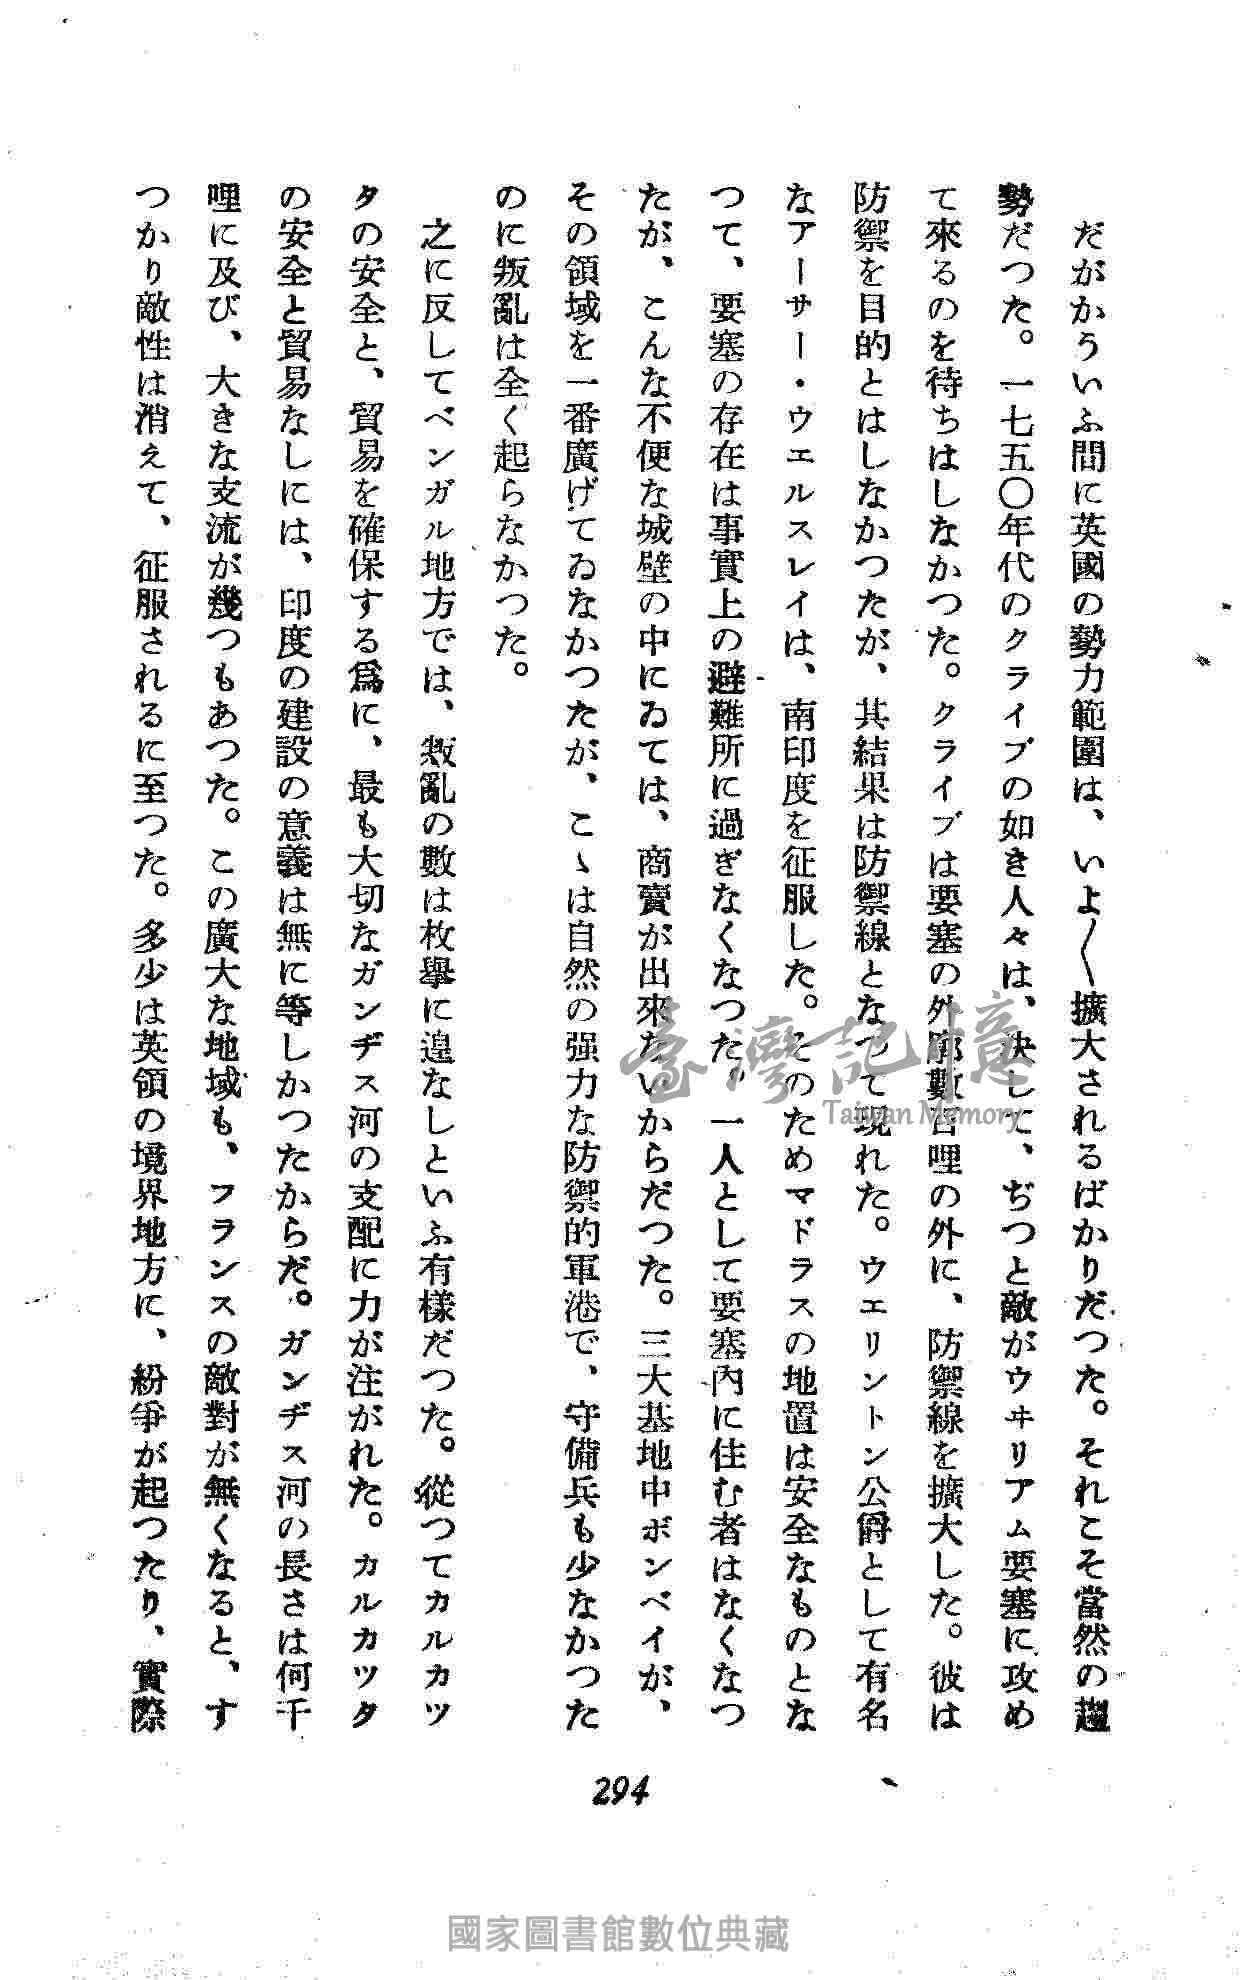 だがかういふ間に英國の勢力範圍は、いよ〱擴大されるばかりだつた。それこそ當然の趨
勢だつた。一七五〇年代のクライブの如き人々は、決して、ぢつと敵がウヰリアム要塞に攻め
て來るのを待ちはしなかつた。クライブは要塞の外廓數百哩の外に、防禦線を擴大した。彼は
防禦を目的とはしなかつたが、其結果は防禦線となつて現れた。ウエリントン公爵として有名
なアーサー・ウエルスレイは、南印度を征服した。そのためマドラスの地置は安全なものとな
つて、要塞の存在は事實上の避難所に過ぎなくなつた。一人として要塞內に住む者はなくなつ
たが、こんな不便な城壁の中にゐては、商賣が出來ないからだつた。三大基地中ボンベイが、
その領域を一番廣げてゐなかつたが、こゝは自然の强力な防禦的軍港で、守備兵も少なかつた
のに叛亂は全く起らなかつた。
之に反してベンガル地方では、叛亂の數は枚擧に遑なしといふ有樣だつた。從つてカルカツ
タの安全と、貿易を確保する爲に、最も大切なガンヂス河の支配に力が注がれた。カルカツタ
の安全と貿易なしには、印度の建設の意義は無に等しかつたからだ。ガンヂス河の長さは何千
哩に及び、大きな支流が幾つもあつた。この廣大な地域も、フランスの敵對が無くなると、す
つかり敵性は消えて、征服されるに至つた。多少は英領の境界地方に、紛爭が起つたり、實際
294
臺灣記憶
Taiwan Memory
國家圖書館數位典藏